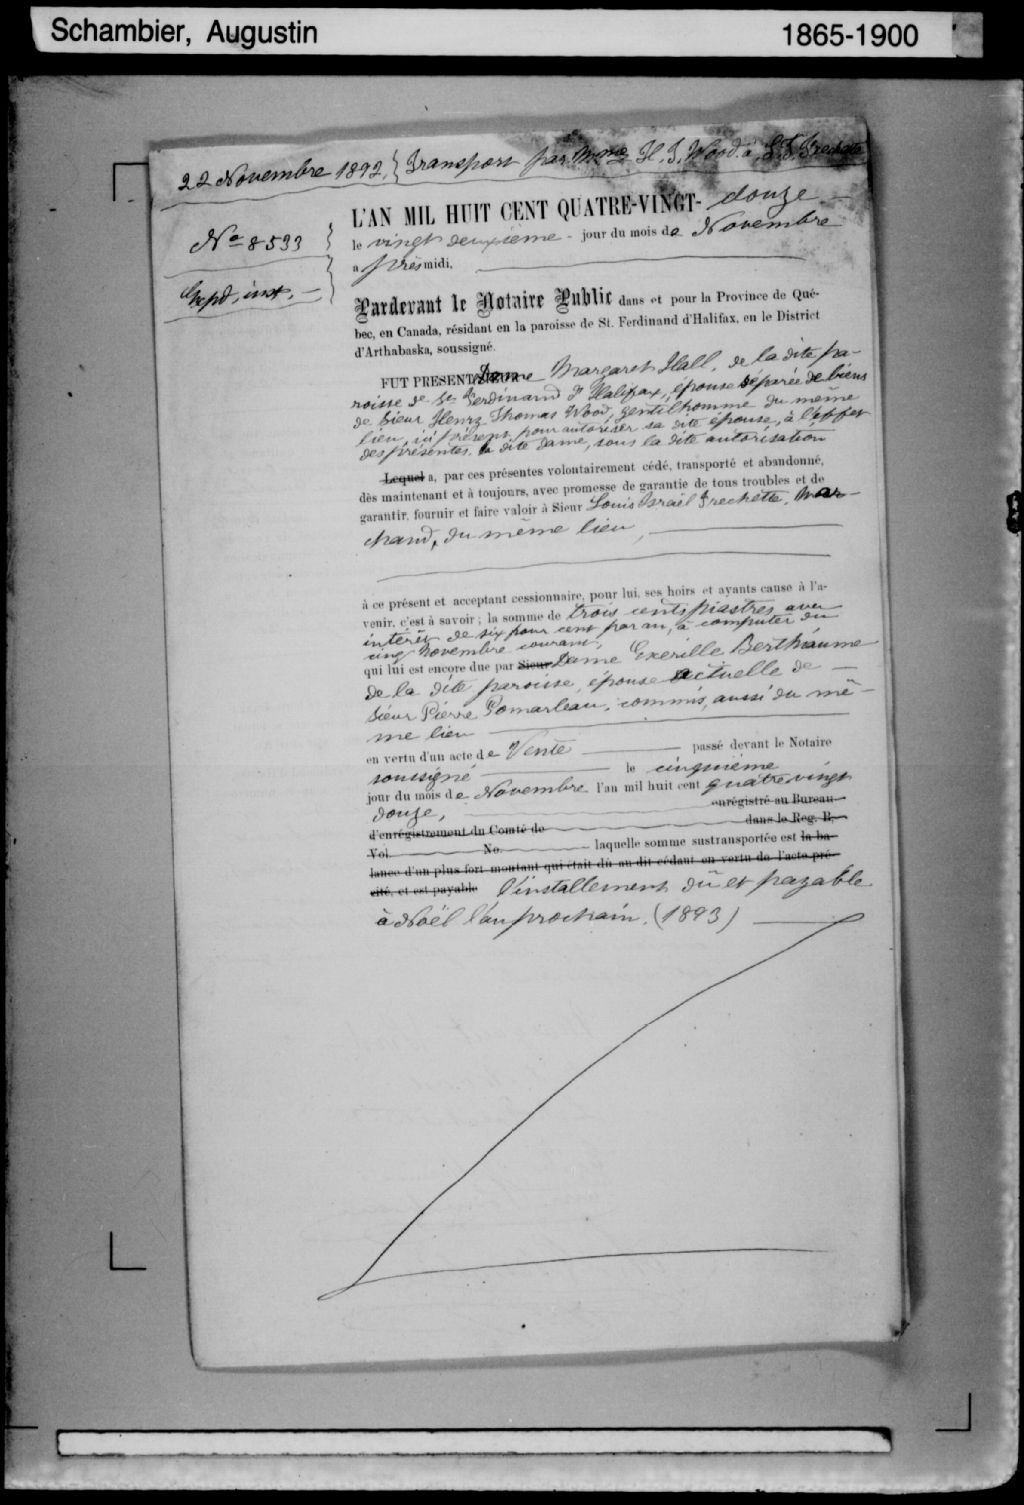 Schambier, Augustin 1865-1900
22 Novembre 1892. } Transport par Mme H. T. Wood. à L. I. Frechette
No 8533
Expd, inst. —
L'AN MIL HUIT CENT QUATRE-VINGT- douze —
le vingt deuxième - jour du mois de Novembre
après midi,
Pardevant le Notaire Public dans et pour la Province de Qué-
bec, en Canada, résidant en la paroisse de St. Ferdinand d'Halifax, en le District
d'Arthabaska, soussigné.
FUT PRESENT Dame Margaret Hall, de la dite pa-
roisse de St Ferdinand d'Halifax, épouse séparée de biens
de Sieur Henry Thomas Wood, gentilhomme du même
lieu, ici présent, pour autoriser sa dite épouse, à l'effet
des présentes. la dite dame, sous la dite autorisation
Lequel a, par ces présentes volontairement cédé, transporté et abandonné,
dès maintenant et à toujours, avec promesse de garantie de tous troubles et de
garantir, fournir et faire valoir à Sieur Louis Israël Frechette, mar-
chand, du même lieu,
à ce présent et acceptant cessionnaire, pour lui, ses hoirs et ayants cause à l'a-
venir, c'est à savoir ; la somme de trois cents piastres avec
intérêt de six pour cent par an, à computer du
cinq novembre courant,
qui lui est encore due par Sieur Dame Exerille Berthiaume
de la dite paroisse, épouse actuelle de —
Sieur Pierre Pomarleau, commis, aussi du mê-
me lieu
en vertu d'un acte de Vente passé devant le Notaire
soussigné le cinquième
jour du mois de Novembre l'an mil huit cent quatre vingt
douze, enrégistré au Bureau
d'enrégistrement du Comté de dans le Reg. B,
Vol. No. laquelle somme sustransportée est la ba-
lance d'un plus fort montant qui était dû au dit cédant en vertu de l'acte pré-
cité, et est payable l'installement dû et payable
à Noël l'an prochain, (1893)